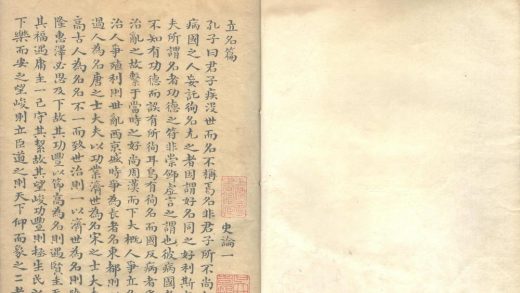 立名篇 史論一
孔子曰君子疾沒世而名不稱焉名非君子所不尚
病國之人妄託徇名充之者因謂好名同之好利斯
夫所謂名者功德之符非崇虛言之謂也彼病國者
不知有功德而誤有所徇耳烏有徇名而國反病者
治亂之故繫于當時之好尚周漢而下大概人爭立
治人爭殖利則世亂西京盛時爭為長者名東都則
過人為名唐之士大夫以功業濟世為名宋之士大
高古人為名名不一而致世治則一以濟世為名則
隆惠澤必思及下故其功豐以節高為名則遇賢主
其福遇庸主一己守其絜故其望峻功豐則極生民
下樂而安之望峻則立臣道之則天下仰而象之二者